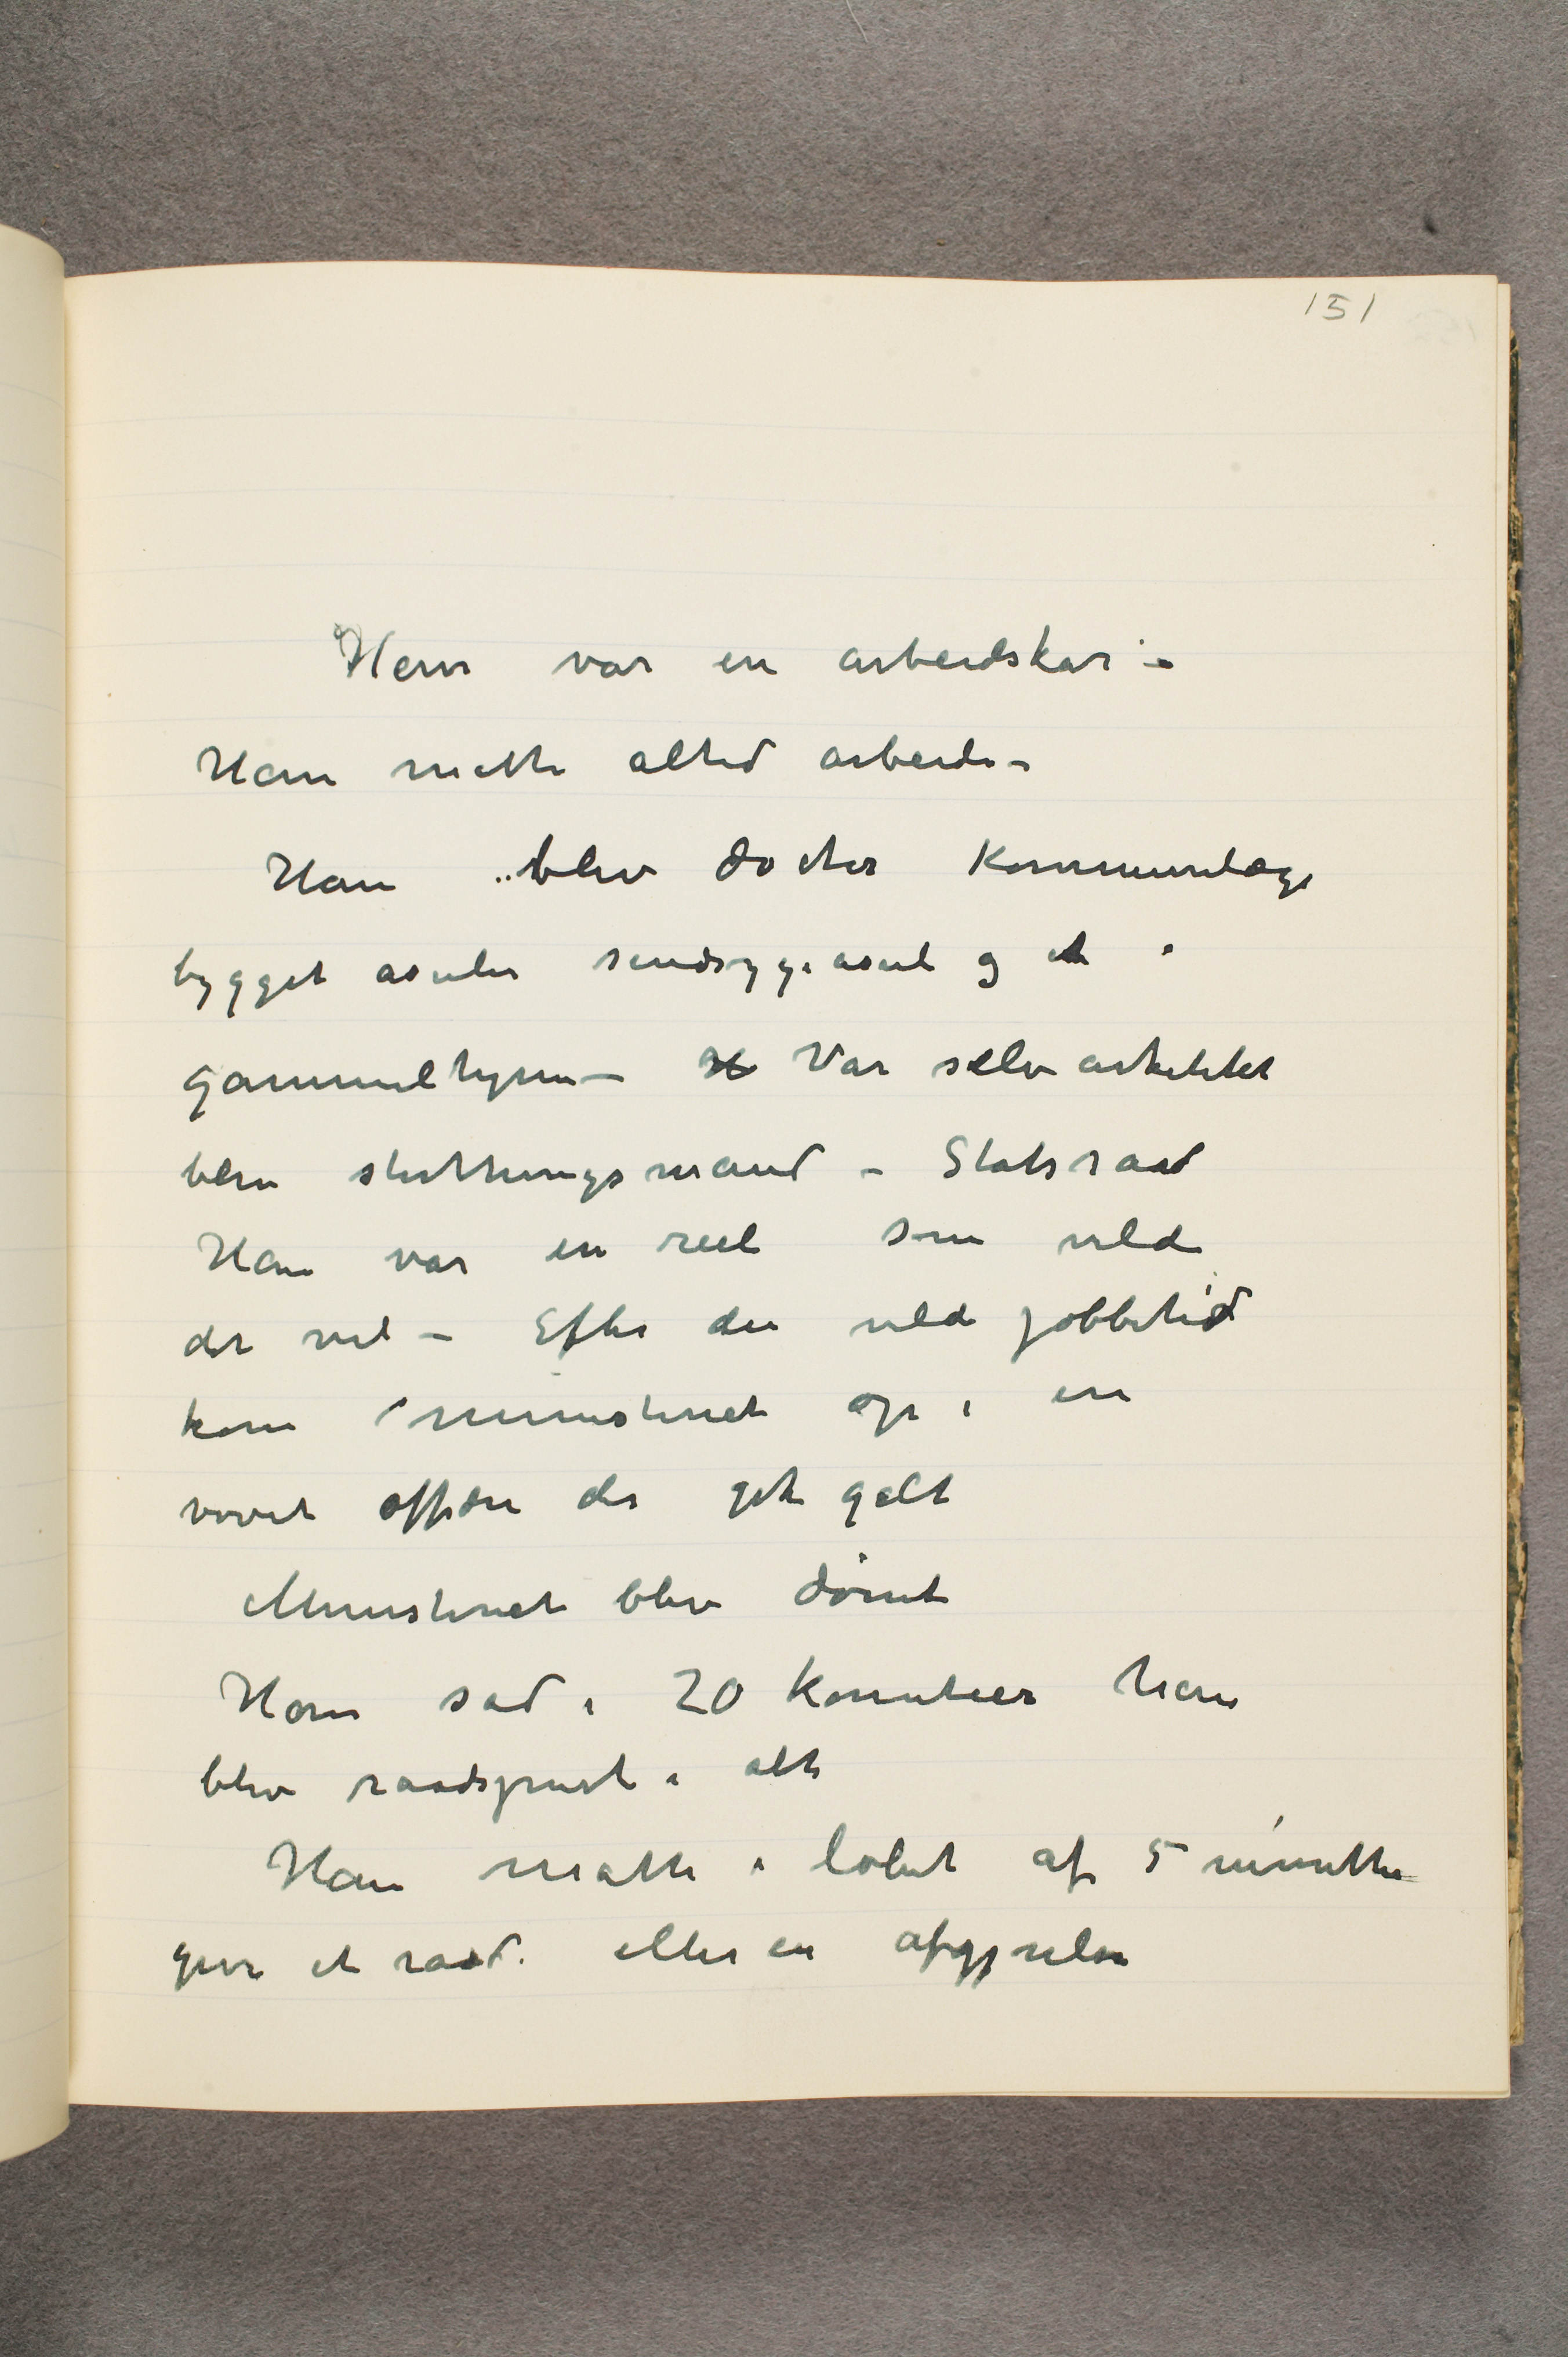 151
Han var en arbeidskar –
Han måtte altid arbeide –
Han blev docter Kommunelæge
bygget asyler sindsygeasyl og et
gammelhjem – H Var selv arkitekt
blev storthingsmand – Statsraad
Han var en reel som vilde
det vel – Efter den vilde jobbetid
kom ministeriet op i en
vovet affære der gik galt
Ministeriet blev dømt
Han sad i 20 komiteer han
blev raadspurt i alt
Han måtte i løbet af 5 minutter
give et raad. eller en afgjørelse